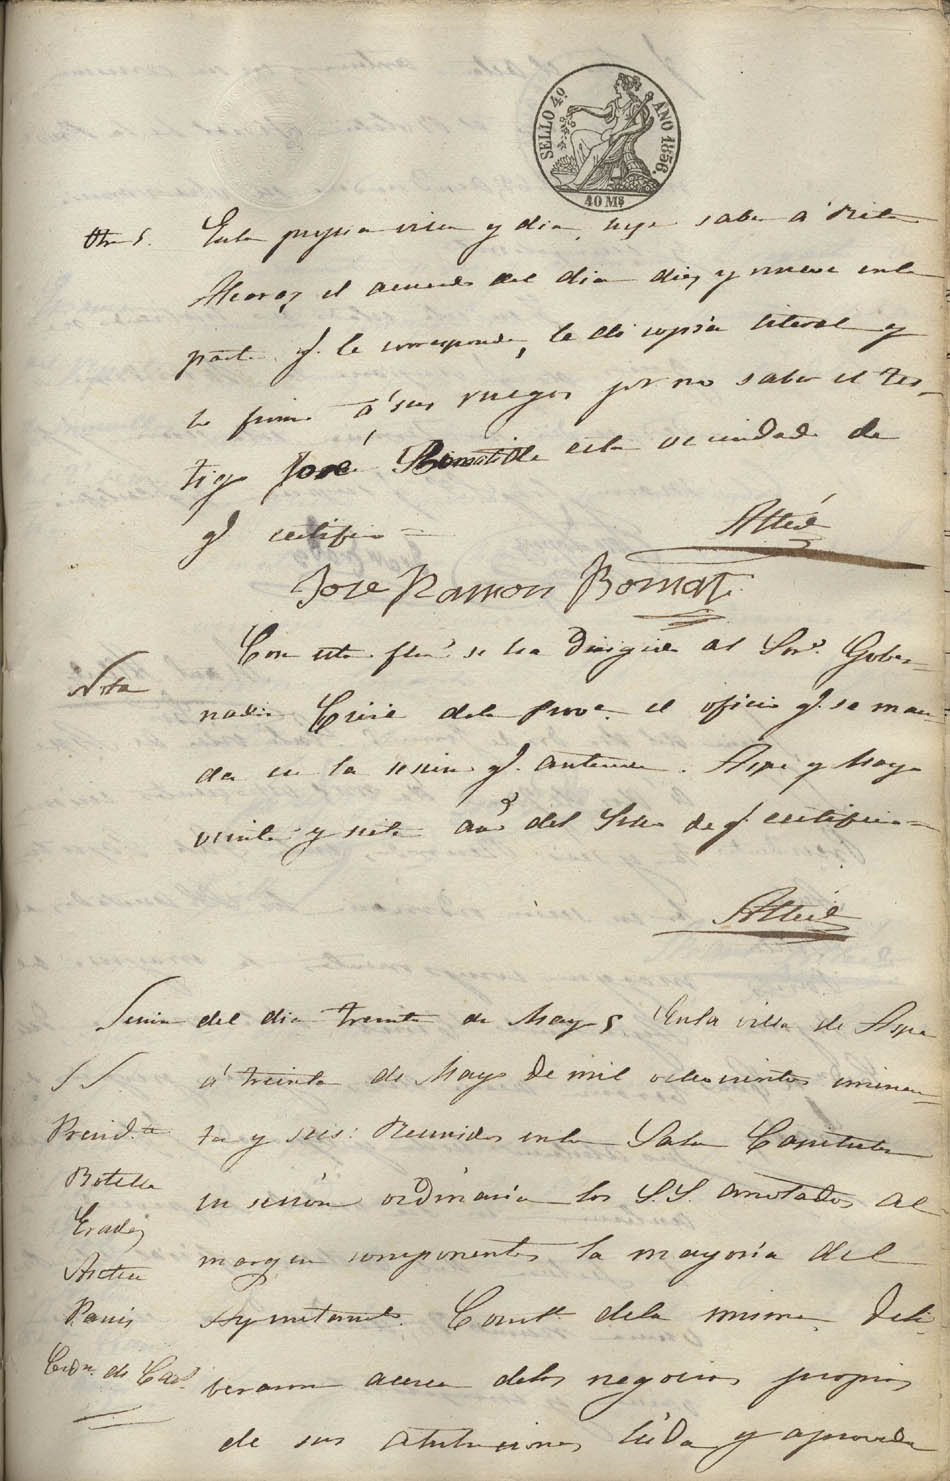 SELLO 4º AÑO 1856.
40 Ms
Otro s. En la propia villa y dia, hize saber á Rita
Alcaraz el acuerdo del dia diez y nueve en la
parte q.e le corresponde, le di copia literal y
lo firmo á sus ruegos por no saber el tes-
tigo José esta vecindad de
q.e certifico =
José Ramon Bomati
Nota
Con esta fha se ha dirigido al Sor. Gober-
nador Civil dela Prova. el oficio q.e se man-
da en la sesion q.e antecede. Aspe y Mayo
veinte y siete año del Sello de q.e certifico =
Sesion del dia treinta de Mayo En la villa de Aspe
S S
Presid.te
Botella
Eradez
Pavis
de
á treinta de Mayo de mil ochocientos cincuen-
ta y seis: Reunidos en la Sala Capitular
en sesión ordinaria los S.S. anotados al
margen componentes la mayoría del
Ayuntam.to Const.l dela misma. Deli-
beraron acerca delos negocios propios
de sus atribuciones leida y aprovada